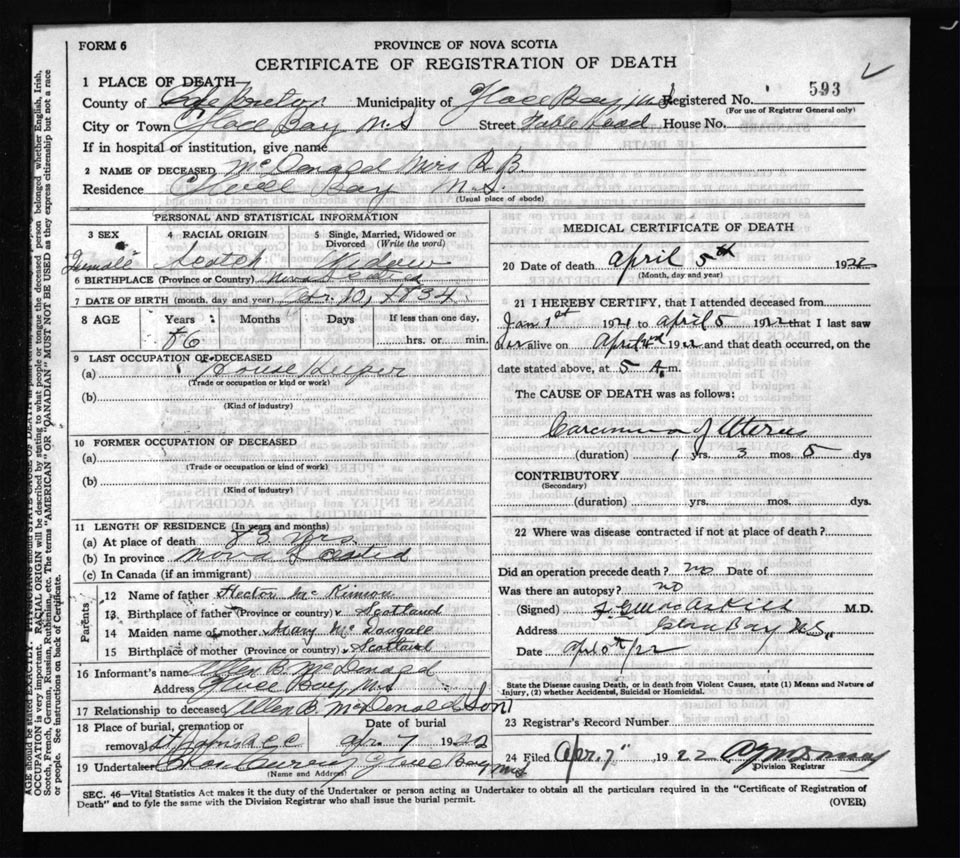 FORM 6
PROVINCE OF NOVA SCOTIA
593
CERTIFICATE OF REGISTRATION OF DEATH
1 PLACE OF DEATH
County of Cape Breton Municipality of Glace Bay N.S Registered No.
(For use of Registrar General only)
City or Town Glace Bay N.S Street Table Head House No.
If in hospital or institution, give name
2 NAME OF DECEASED McDonald Mrs R B.
Residence Glace Bay N.S.
(Usual place of abode)
PERSONAL AND STATISTICAL INFORMATION
3 SEX 4 RACIAL ORIGIN 5 Single, Married, Widowed or Divorced (Write the word)
Female Scotch Widow
6 BIRTHPLACE (Province or Country) Nova Scotia
7 DATE OF BIRTH (month, day and year) 10, 1834
8 AGE Years Months Days If less than one day,
86 hrs. or min.
9 LAST OCCUPATION OF DECEASED
(a) House Keeper
(Trade or occupation or kind or work)
(b)
(Kind of industry)
10 FORMER OCCUPATION OF DECEASED
(a)
(Trade or occupation or kind of work)
(b)
(Kind of industry)
11 LENGTH OF RESIDENCE (In years and months)
(a) At place of death yrs.
(b) In province Nova Scotia
(c) In Canada (if an immigrant)
Parents
12 Name of father Hector McKinnon
13 Birthplace of father (Province or country) Scotland
14 Maiden name of mother Mary McDougall
15 Birthplace of mother (Province or country) Scotland
16 Informant's name Allen B. McDonald
Address Glace Bay N.S
17 Relationship to deceased Allen B. McDonald Son
18 Place of burial, cremation or Date of burial
removal Apr. 7 1922
19 Undertaker Glace Bay N.S
(Name and Address)
MEDICAL CERTIFICATE OF DEATH
20 Date of death April 5th 1922
(Month, day and year)
21 I HEREBY CERTIFY, that I attended deceased from
Jan 1st 1921 to April 5 1922 that I last saw
her alive on April 4th 1922 and that death occurred, on the
date stated above, at 5 A.m.
The CAUSE OF DEATH was as follows:
Carcinoma of Uterus
(duration) 1 yrs. 3 mos. 5 dys
CONTRIBUTORY
(Secondary)
(duration) yrs. mos. dys.
22 Where was disease contracted if not at place of death?
Did an operation precede death? no Date of
Was there an autopsy? no
(Signed) M.D.
Address Glace Bay N.S.
Date April 5th/22
State the Disease causing Death, or in death from Violent Causes, state (1) Means and Nature of
Injury, (2) whether Accidental, Suicidal or Homicidal.
23 Registrar's Record Number
24 Filed Apr. 7" 1922
Division Registrar
SEC. 46—Vital Statistics Act makes it the duty of the Undertaker or person acting as Undertaker to obtain all the particulars required in the "Certificate of Registration of
Death" and to fyle the same with the Division Registrar who shall issue the burial permit.
(OVER)
OCCUPATION is very important. RACIAL ORIGIN will be described by stating to what people or tongue the deceased person belonged whether English, Irish,
Scotch, French, German, Russian, Ruthenian, etc. The terms "AMERICAN" OR "CANADIAN" MUST NOT BE USED as they express citizenship but not a race
or people. See instructions on back of Certificate.